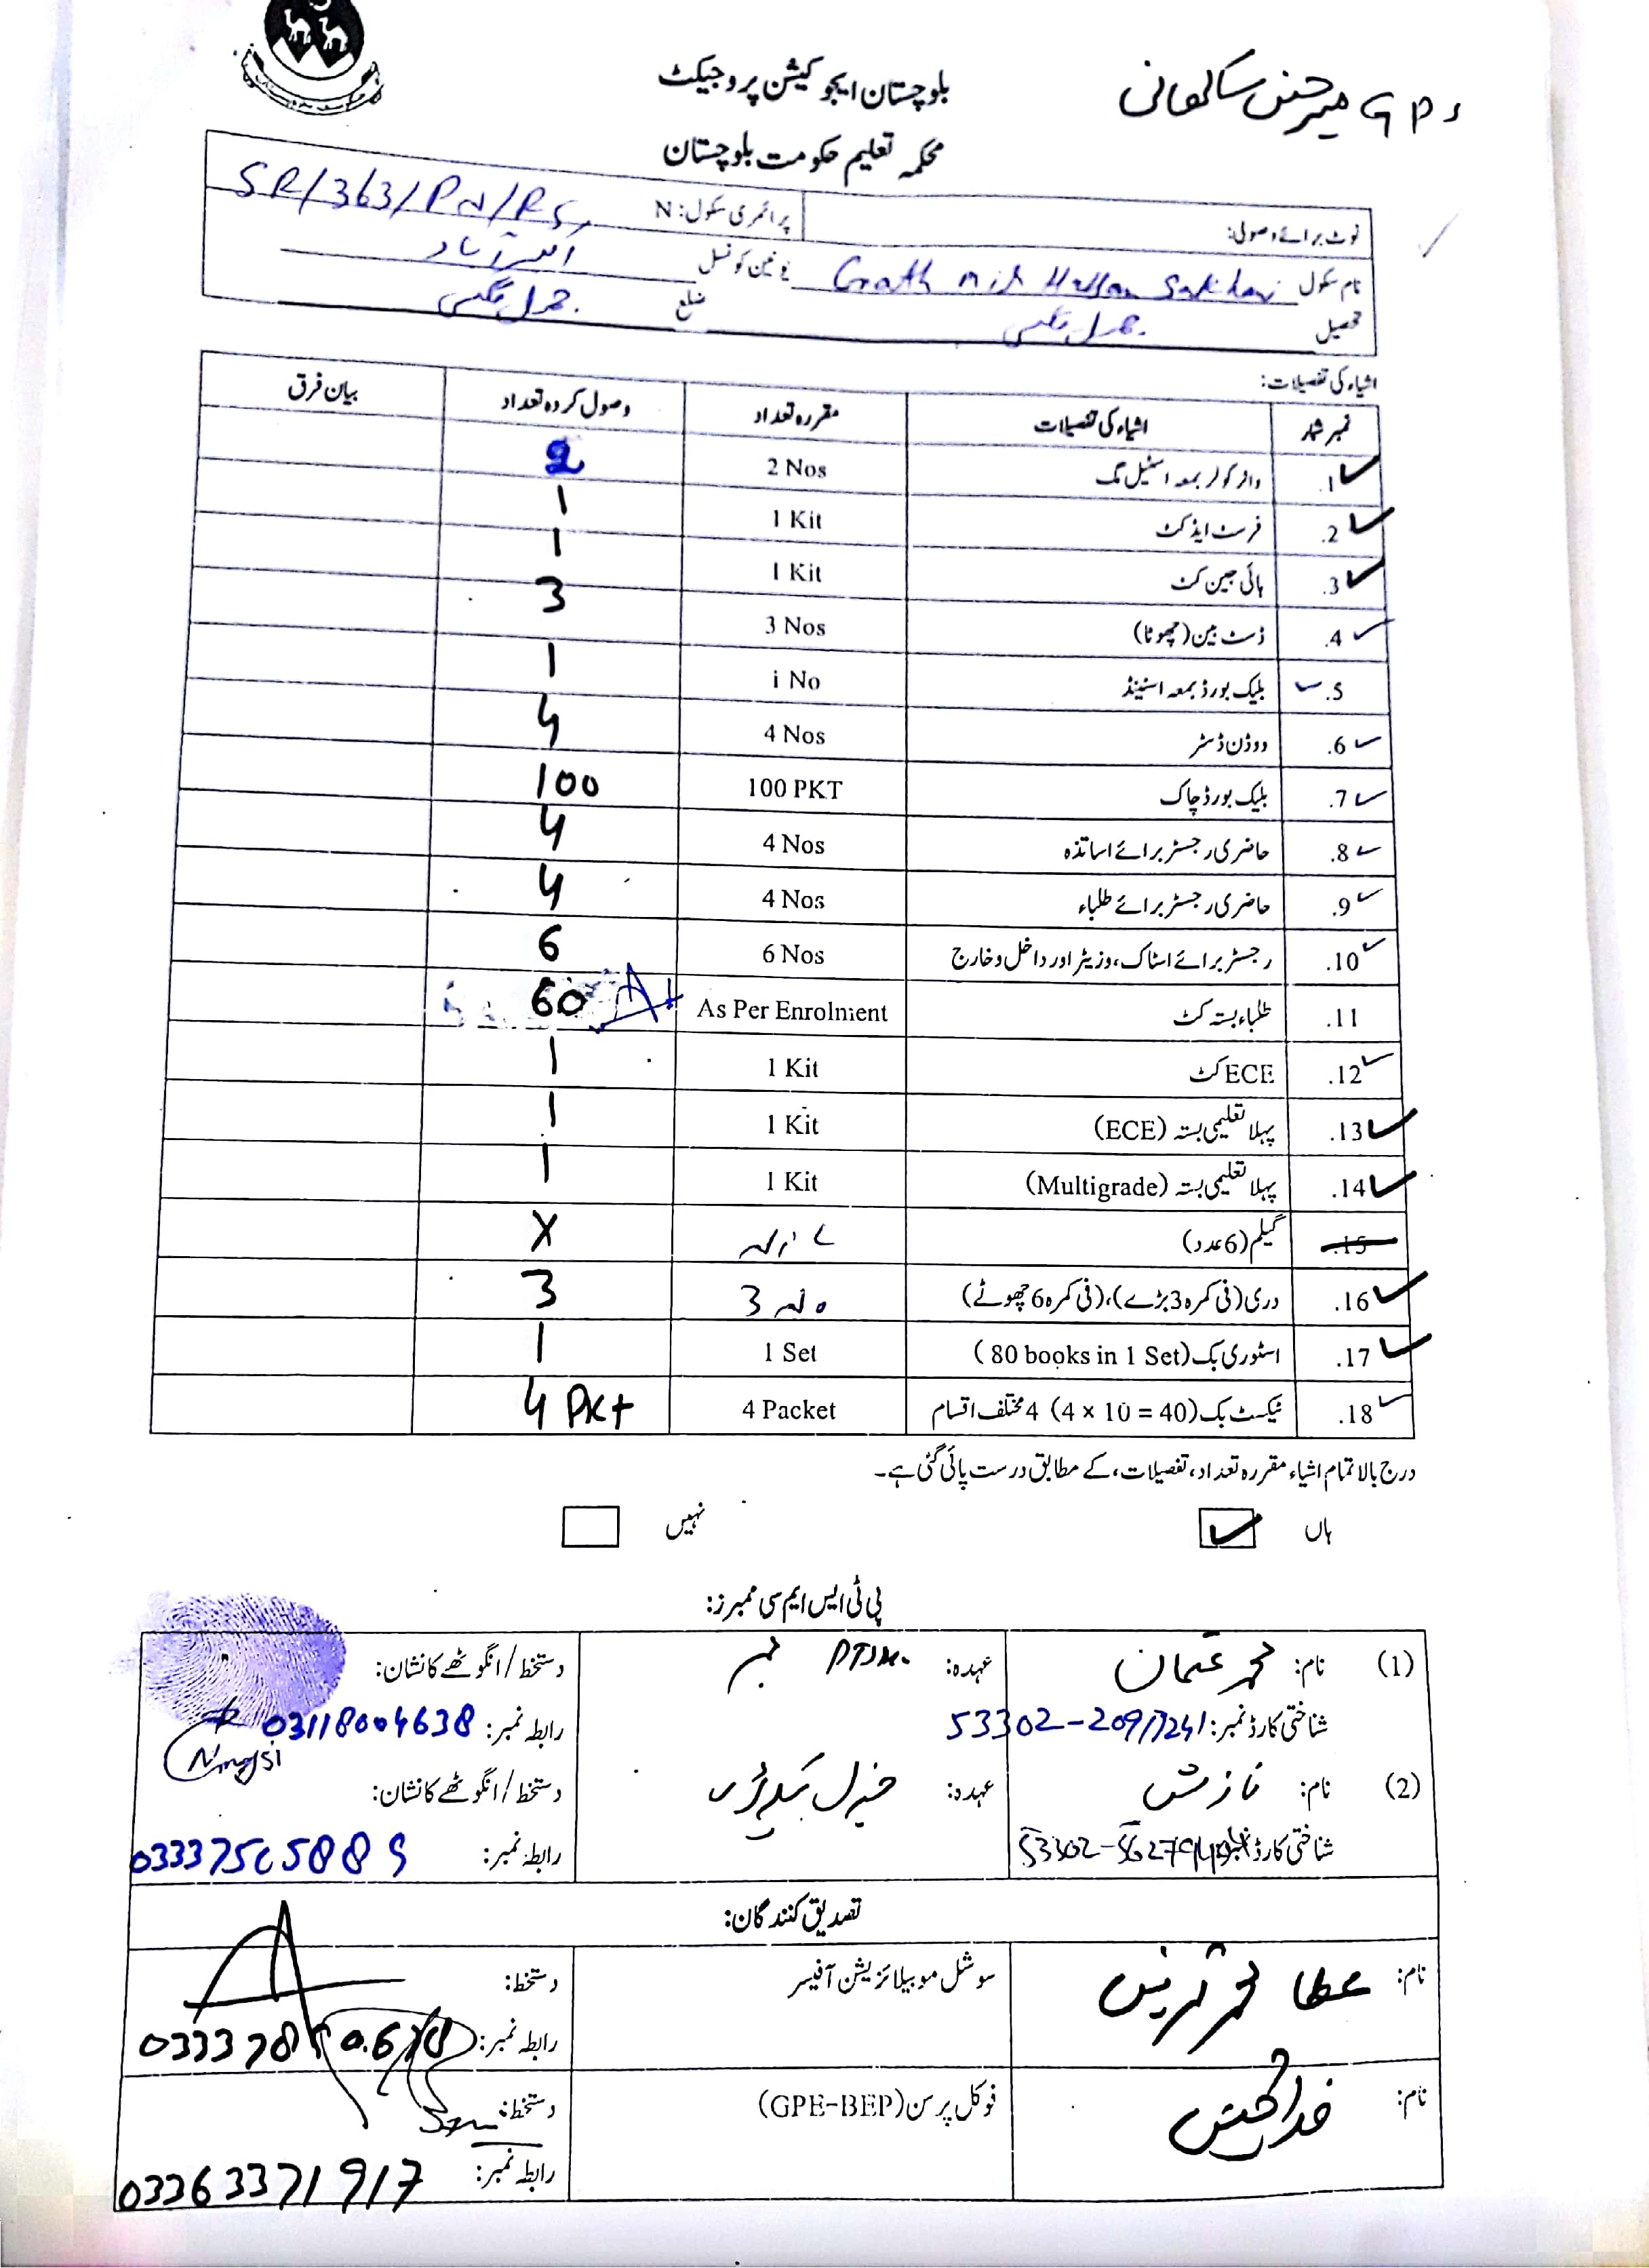 GPS میر حسن ساکھانی
بلوچستان ایجوکیشن پروجیکٹ
محکمہ تعلیم حکومت بلوچستان
نوٹ برائے وصولی: پرائمری سکول: N SR/363/Pd/RS
نام سکول Goth Mir Hassan Sakhani یونین کونسل
تحصیل جھل مگسی ضلع جھل مگسی
اشیاء کی تفصیلات:
نمبر شمار اشیاء کی تفصیلات مقررہ تعداد وصول کردہ تعداد بیان فرق
.1 واٹر کولر بمعہ اسٹیل مگ 2 Nos 2
.2 فرسٹ ایڈ کٹ 1 Kit 1
.3 ہائی جین کٹ 1 Kit 1
.4 ڈسٹ بین (چھوٹا) 3 Nos 3
.5 بلیک بورڈ بمعہ اسٹینڈ 1 No 1
.6 ووڈن ڈسٹر 4 Nos 4
.7 بلیک بورڈ چاک 100 PKT 100
.8 حاضری رجسٹر برائے اساتذہ 4 Nos 4
.9 حاضری رجسٹر برائے طلباء 4 Nos 4
.10 رجسٹر برائے اسٹاک، وزیٹر اور داخل و خارج 6 Nos 6
.11 طلباء بستہ کٹ As Per Enrolment 60
.12 ECE کٹ 1 Kit 1
.13 پہلا تعلیمی بستہ (ECE) 1 Kit 1
.14 پہلا تعلیمی بستہ (Multigrade) 1 Kit 1
.15 گیلم (6 عدد) X
.16 دری (فی کمرہ 3 بڑے)، (فی کمرہ 6 چھوٹے) 3 3
.17 اسٹوری بک (80 books in 1 Set) 1 Set 1
.18 ٹیکسٹ بک (4 x 10 = 40) 4 مختلف اقسام 4 Packet 4 Pkt
درج بالا تمام اشیاء مقررہ تعداد، تفصیلات، کے مطابق درست پائی گئی ہے۔
ہاں نہیں
پی ٹی ایس ایم سی ممبرز:
(1) نام: محمد عثمان عہدہ: ممبر دستخط/انگوٹھے کا نشان:
شناختی کارڈ نمبر: رابطہ نمبر: 03118004638
(2) نام: نازش عہدہ: جنرل سیکرٹری دستخط/انگوٹھے کا نشان:
شناختی کارڈ رابطہ نمبر:
تصدیق کنندگان:
نام: عطا محمد سوشل موبیلائزیشن آفیسر دستخط:
رابطہ نمبر:
نام: خدا بخش فوکل پرسن (GPE-BEP) دستخط:
رابطہ نمبر: 03363371917